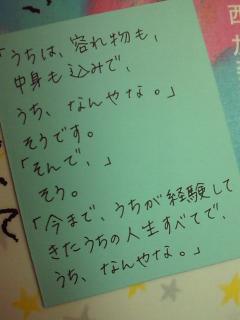 「うちは、容れ物も、
中身も込みで、
うち、なんやな。」
そうです。
「そんで、」
そう。
「今まで、うちが経験して
きたうちの人生すべてで、
うち、なんやな。」
西